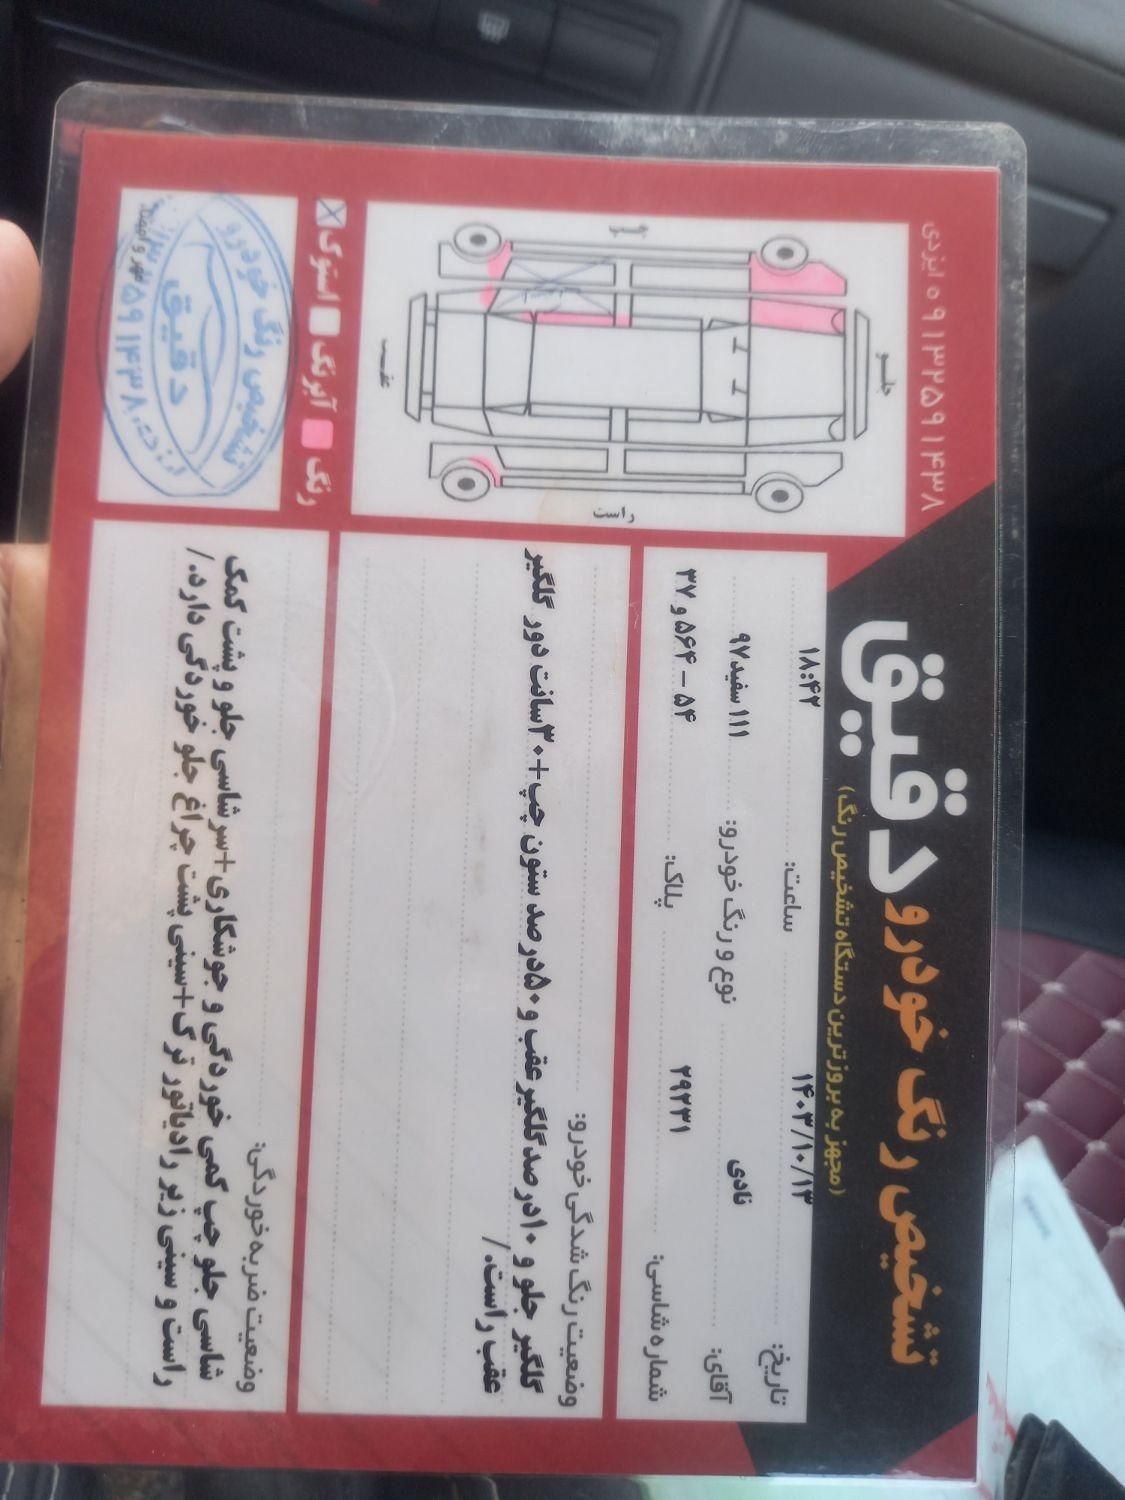 تشخیص رنگ خودرو دقیق
(مجهز به بروزترین دستگاه تشخیص رنگ)
ایزدی ۰۹۱۳۲۵۹۱۴۳۸
تاریخ: ۱۴۰۳/۱۰/۱۳ ساعت: ۱۸:۴۲
آقای: نادی نوع و رنگ خودرو: ۱۱۱ سفید ۹۷
شماره شاسی: ۲۹۲۳۱ پلاک: ۵۴ - ۵۶۴ و ۳۷
وضعیت رنگ شدگی خودرو:
گلگیر جلو و ۱۰درصد گلگیر عقب و ۵۰درصد ستون چپ+۳۰سانت دور گلگیر
عقب راست./
وضعیت ضربه خوردگی:
شاسی جلو چپ کمی خوردگی و جوشکاری+سرشاسی جلو و پشت کمک
راست و سینی زیر رادیاتور ترک+سینی پشت چراغ جلو خوردگی دارد./
جلو
چپ
راست
عقب
رنگ
آبرنگ
استوک
مهر و امضاء
تشخیص رنگ خودرو
دقیق